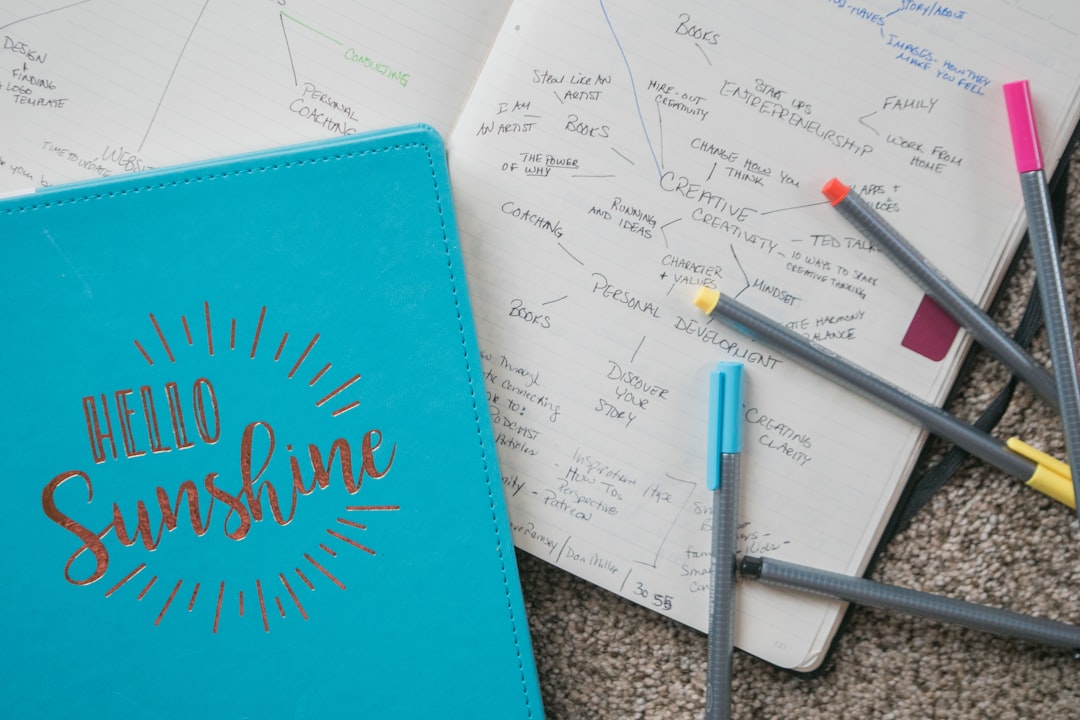 DESIGN
+
FINDING
LOGO
TEMPLATE
CONSULTING
PERSONAL
COACHING
TIME TO UPDATE
WEBSITE
HELLO
Sunshine
STORY/ABOUT
IMAGES - HOW THEY
MAKE YOU FEEL
BOOKS
STEAL LIKE AN
ARTIST
I AM
AN ARTIST
BOOKS
THE POWER
OF WHY
HIRE-OUT
CREATIVITY
START UPS
ENTREPRENEURSHIP
FAMILY
WORK FROM
HOME
CHANGE HOW YOU
THINK
CREATIVE
CREATIVITY
APPS +
RUNNING
AND IDEAS
TED TALK
10 WAYS TO SPARK
CREATIVE THINKING
COACHING
CHARACTER
+ VALUES
MINDSET
HARMONY
BALANCE
PERSONAL DEVELOPMENT
BOOKS
DISCOVER
YOUR
STORY
CREATING
CLARITY
Through
Connecting
to:
PODCAST
Articles
Inspiration Hope
- How Tos
Perspective
Patreon
Ramsey/Dan Miller/
30 55